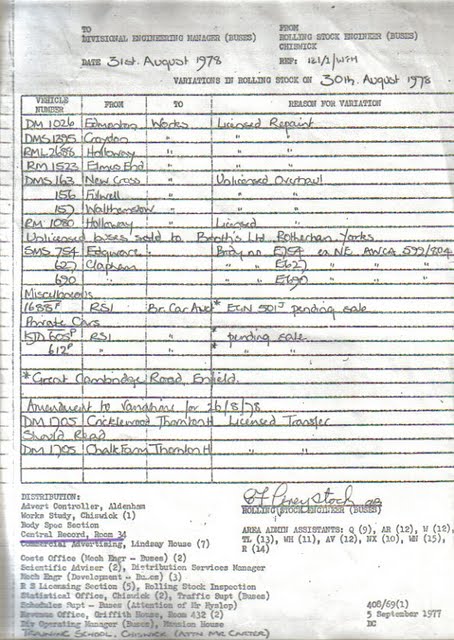 TO FROM
DIVISIONAL ENGINEERING MANAGER (BUSES) ROLLING STOCK ENGINEER (BUSES)
CHISWICK
DATE 31st. August 1978 REF: 121/1/WFM
VARIATIONS IN ROLLING STOCK ON 30th. August 1978
VEHICLE NUMBER FROM TO REASON FOR VARIATION
DM 1026 Edmonton Works Licensed Repaint
DMS 1295 Croydon " " "
RML 2688 Holloway " " "
RM 1523 Elmers End " " "
DMS 163 New Cross " Unlicensed Overhaul
156 Fulwell " " "
157 Walthamstow " " "
RM 1080 Holloway " Licensed "
Unlicensed buses sold to Booth's Ltd, Rotherham Yorks
SMS 754 Edgware Body no. E754 ex. NE. AWCA 599/804
627 Clapham " " E627 " " "
690 " " " E690 " " "
Miscellaneous
1688P RS1 Br. Car Auct * EGN 501J pending sale
Private Cars
KJD 605P RS1 " * pending sale
612P " " * " "
* Great Cambridge Road, Enfield.
Amendment to Variations for 26/8/78
DM 1705 Cricklewood Thornton H Licensed Transfer
Should Read
DM 1705 Chalk Farm Thornton H " "
DISTRIBUTION:
Advert Controller, Aldenham
Works Study, Chiswick (1)
Body Spec Section
Central Record, Room 34
Commercial Advertising, Lindsay House (7)
Costs Office (Mech Engr - Buses) (2)
Scientific Adviser (2), Distribution Services Manager
Mech Engr (Development - Buses) (3)
R S Licensing Section (5), Rolling Stock Inspection
Statistical Office, Chiswick (2), Traffic Supt (Buses)
Schedules Supt - Buses (Attention of Mr Hyslop)
Revenue Office, Griffith House, Room 432 (2)
Div Operating Manager (Buses), Mansion House
TRAINING SCHOOL. CHISWICK (ATTN MR CARTER)
ROLLING STOCK ENGINEER (BUSES)
AREA ADMIN ASSISTANTS: Q (9), AR (12), W (12),
TL (13), WH (11), AV (12), NX (10), WN (15),
R (14)
408/69(1)
5 September 1977
BC